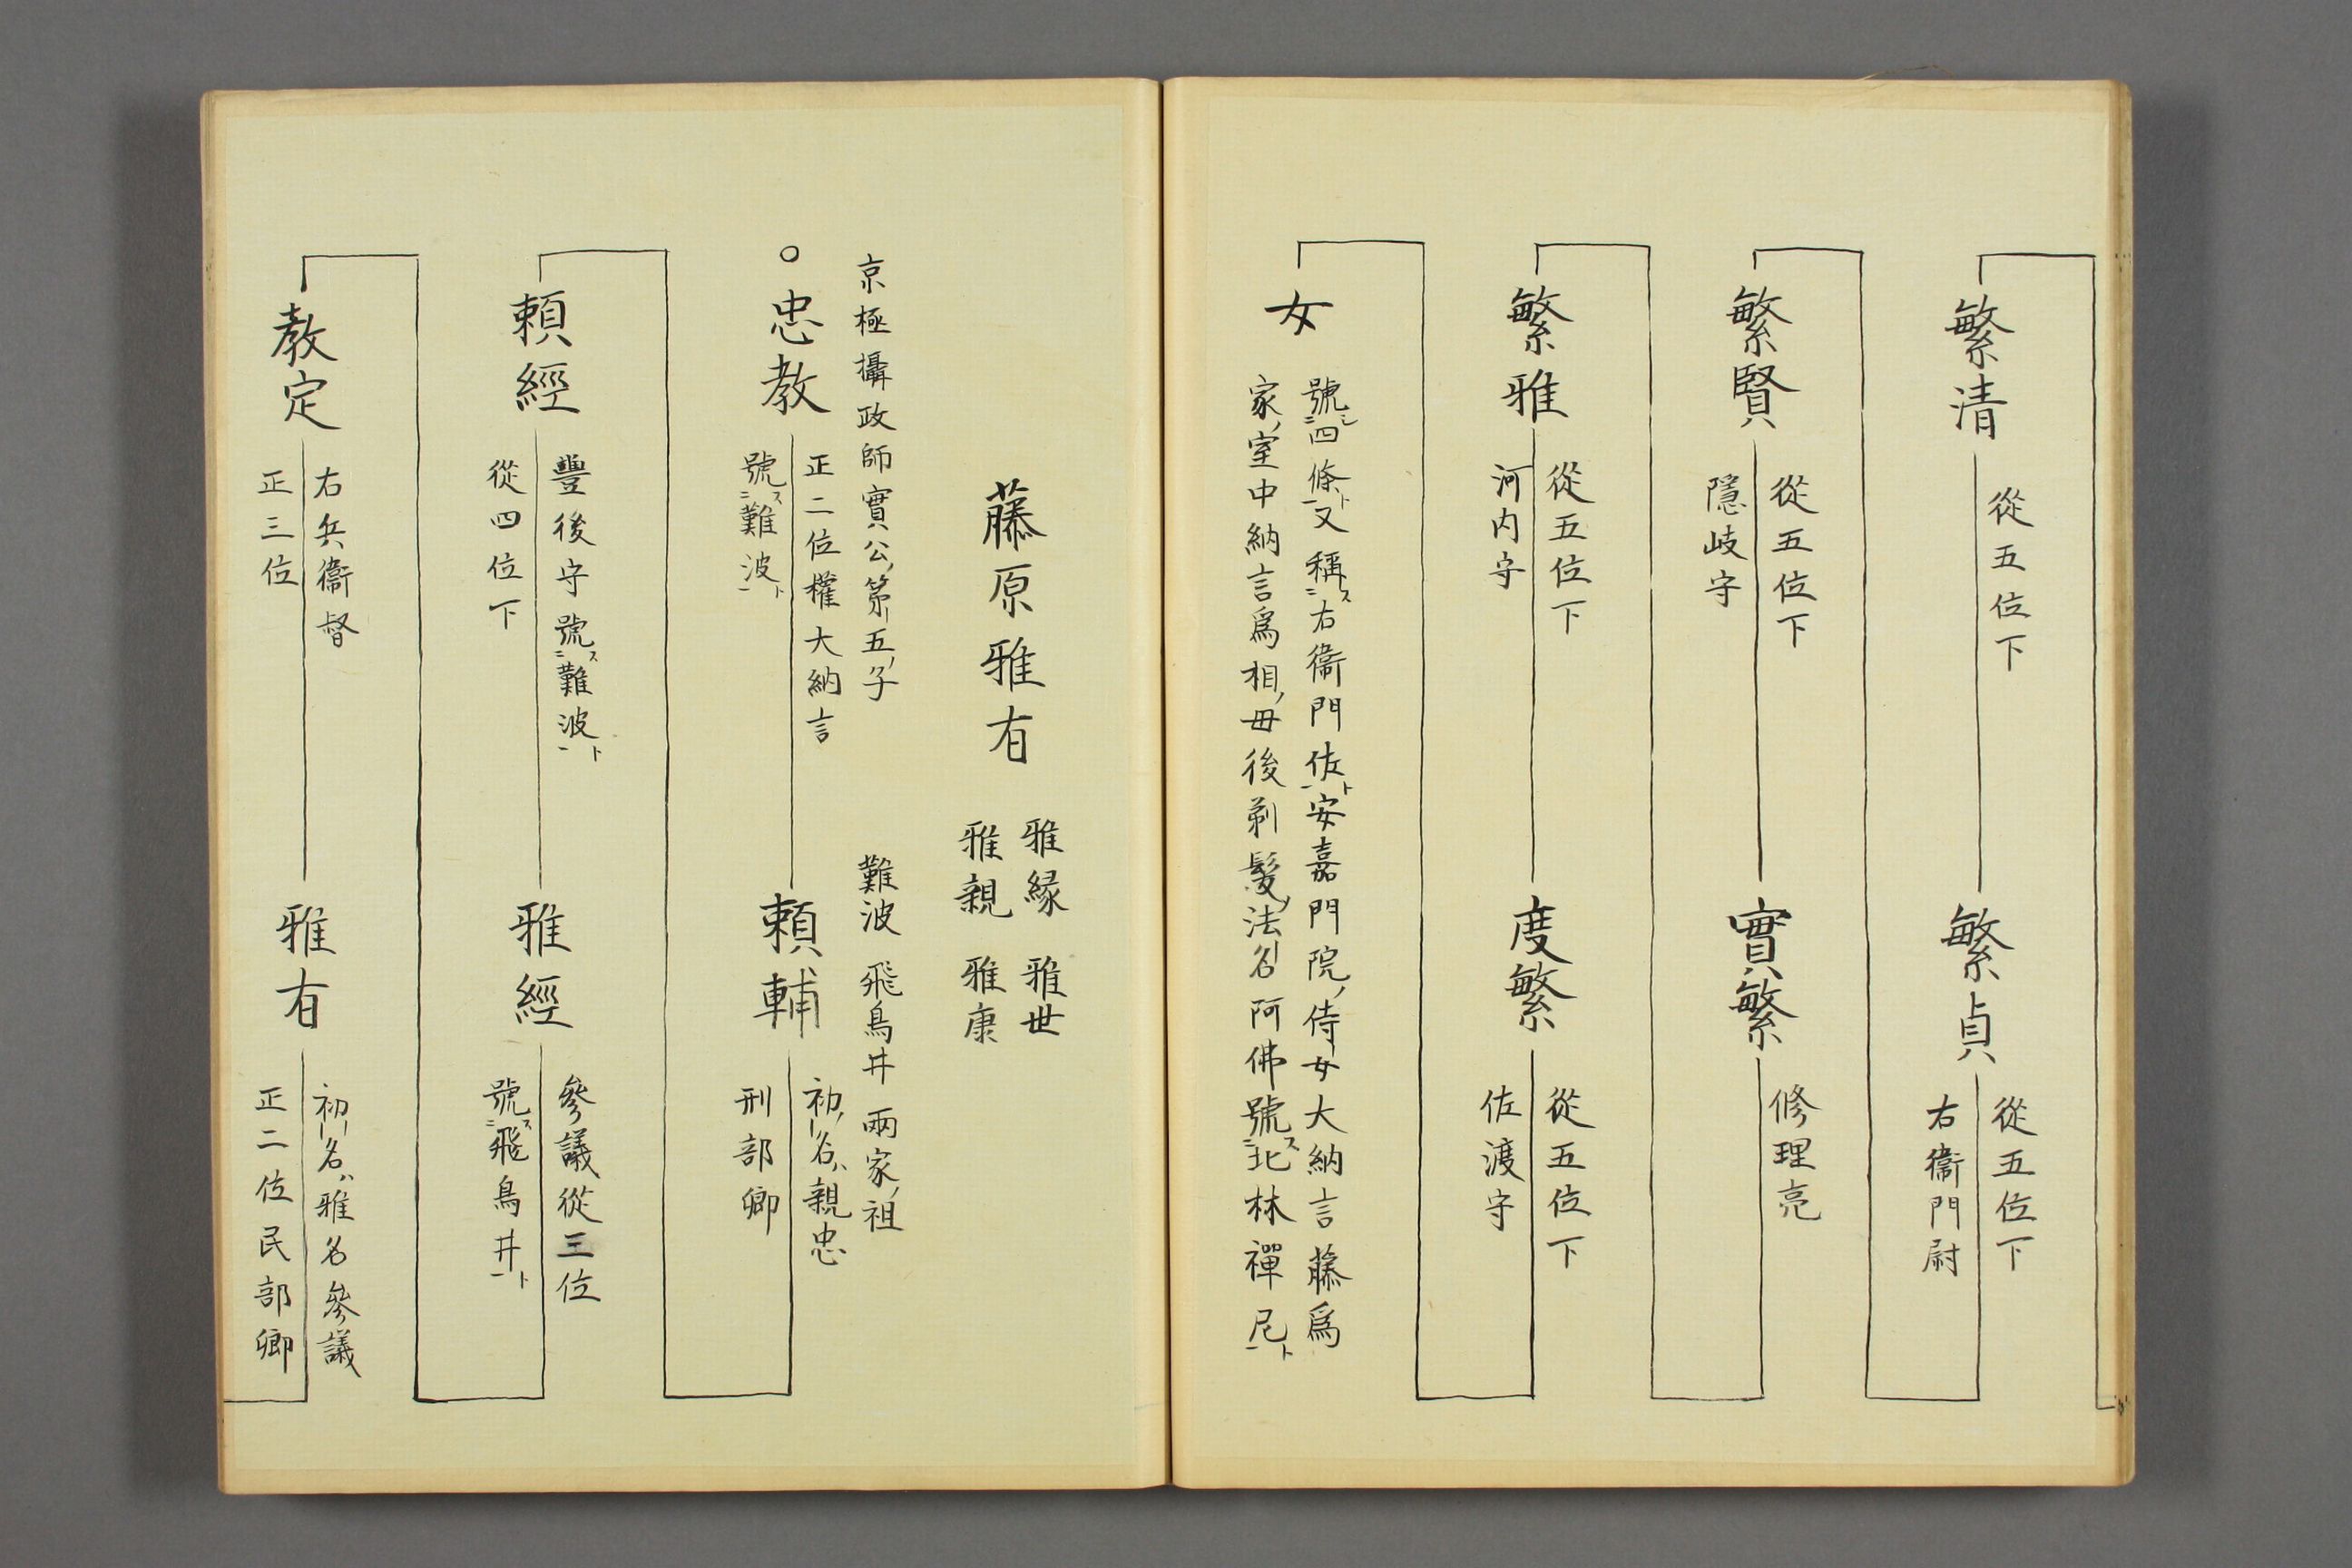 繁清
從五位下
繁貞
從五位下
右衞門尉
繁賢
從五位下
隱岐守
實繁
修理亮
繁雅
從五位下
河内守
度繁
從五位下
佐渡守
女
號シ二四條ト一又稱ス二右衞門佐ト一安嘉門院ノ侍女大納言藤爲
家ノ室中納言爲相ノ母後剃髮ノ法名阿佛號ス二北林禪尼ト一
藤原雅有
雅緣 雅世
雅親 雅康
京極攝政師實公ノ第五ノ子
難波 飛鳥井 兩家ノ祖
○忠教
正二位權大納言
號ス二難波ト一
賴輔
初ノ名ハ親忠
刑部卿
賴經
豐後守號ス二難波ト一
從四位下
雅經
參議從三位
號ス二飛鳥井ト一
教定
右兵衞督
正三位
雅有
初ノ名ハ雅名參議
正二位民部卿